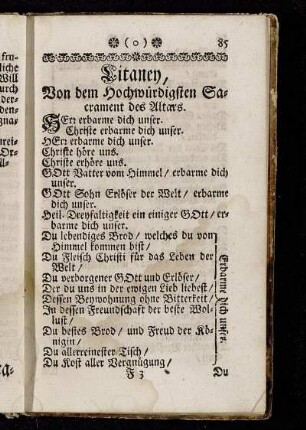 ❀ ( o ) ❀ 85
Litaney,
Von dem Hochwürdigsten Sa-
crament des Altars.
HErr erbarme dich unser.
Christe erbarme dich unser.
HErr erbarme dich unser.
Christe höre uns.
Christe erhöre uns.
GOtt Vatter vom Himmel / erbarme dich
unser.
GOtt Sohn Erlöser der Welt / erbarme
dich unser.
Heil. Dreyfaltigkeit ein einiger GOtt / er-
barme dich unser.
Du lebendiges Brod / welches du von
Himmel kommen bist /
Du Fleisch Christi für das Leben der
Welt /
Du verborgener GOtt und Erlöser /
Der du uns in der ewigen Lieb liebest /
Dessen Beywohnung ohne Bitterkeit /
In dessen Freundschaft der beste Wol-
lust /
Du bestes Brod / und Freud der Kö-
nigin /
Du allerreinester Tisch /
Du Kost aller Vergnügung /
Erbarme dich unser.
F 3 Du